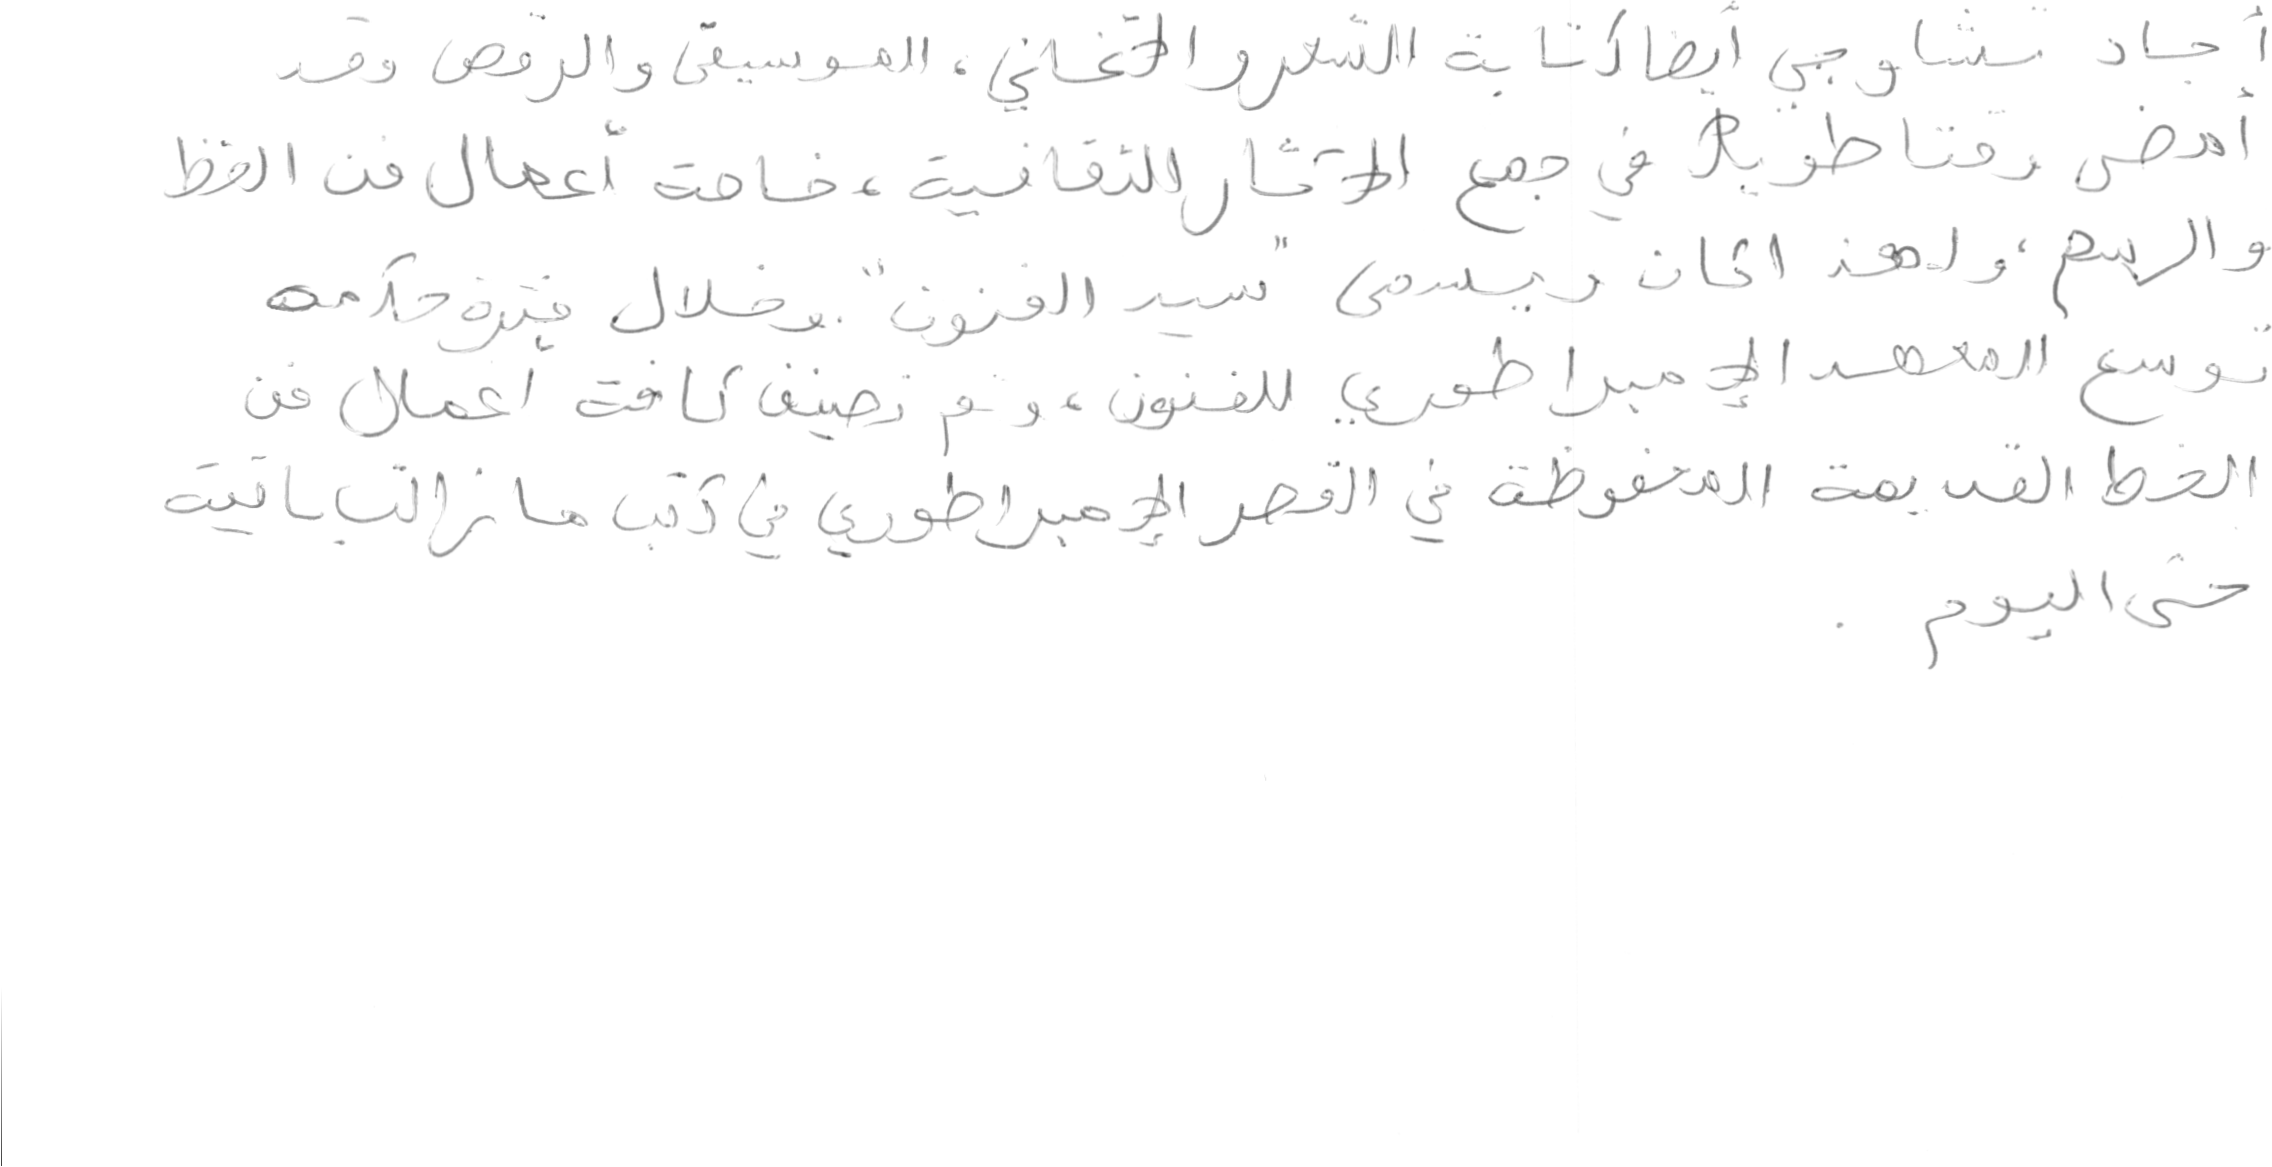 أجاد تشاوجي أيضا كتابة الشعر والأغاني، الموسيقى والرقص وقد
أمضى وقتا طويلا في جمع الآثار الثقافية، خاصة أعمال فن الخط
والرسم، ولهذا كان يسمى "سيد الفنون". وخلال فترة حكمه
توسع المعهد الإمبراطوري للفنون، وتم تصنيف كافة أعمال فن
الخط القديمة المحفوظة في القصر الإمبراطوري في كتب مازالت باقية
حتى اليوم .